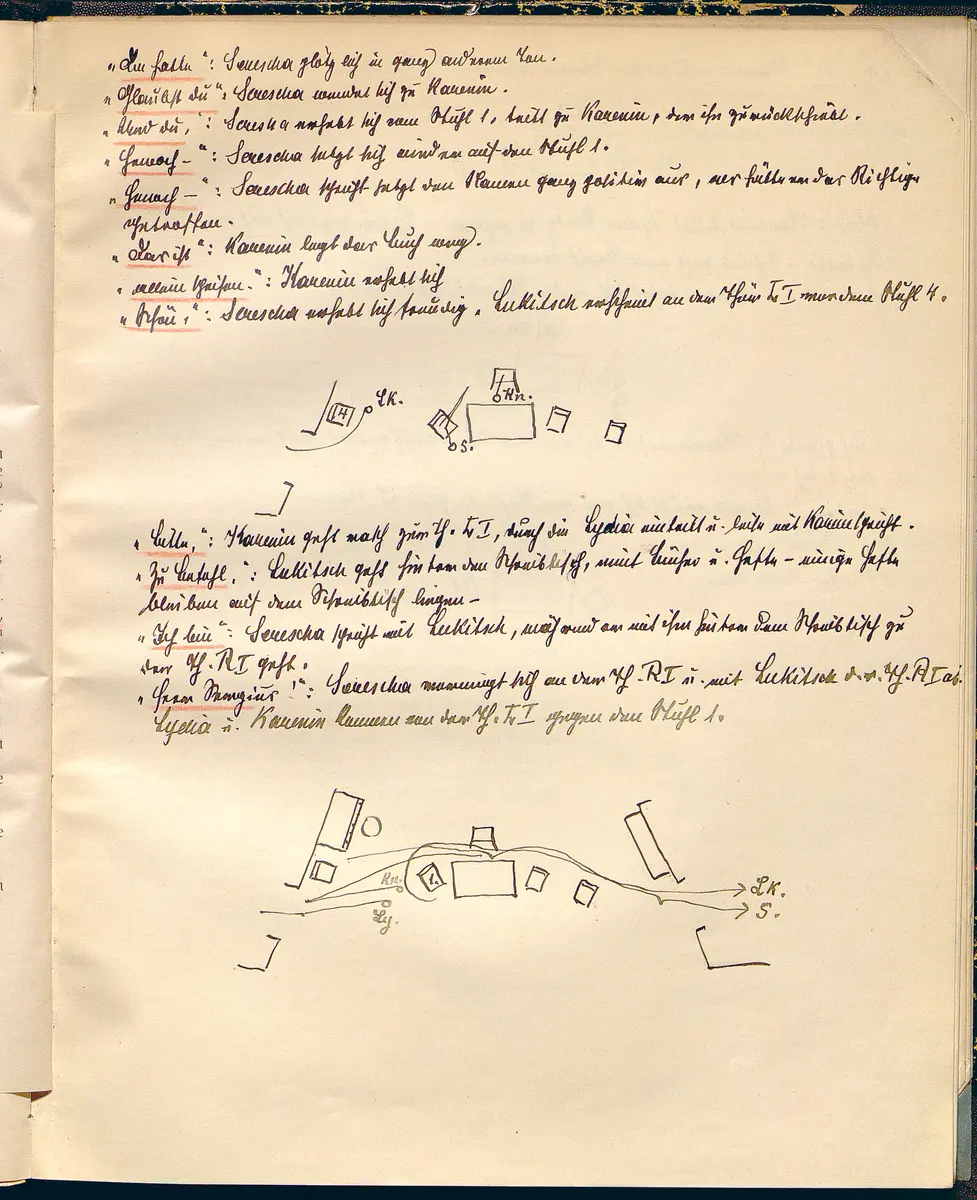 „Du hatte“: Serescha plötzlich in ganz anderem Ton.
„Glaubst du“: Serescha wendet sich zu Karenin.
„Und du,“: Serescha erhebt sich vom Stuhl 1, tritt zu Karenin, der ihn zurückschiebt.
„Henoch –“: Serescha setzt sich wieder auf den Stuhl 1.
„Henoch –“: Serescha spricht jetzt den Namen ganz positiv aus, als hätte er das Richtige
getroffen.
„Das ist“: Karenin legt das Buch weg.
„allein speisen.“: Karenin erhebt sich
„Schön,“: Serescha erhebt sich freudig. Lukitsch erscheint an der Thür L I vor dem Stuhl 4.
4 LK. Kn.
S.
„Bitte,“: Karenin geht rasch zur Th. L I, durch die Lydia eintritt u. leise mit Karenin spricht.
„Zu Befehl,“: Lukitsch geht hinter den Schreibtisch, nimt Bücher u. Hefte – einige Hefte
bleiben auf dem Schreibtisch liegen –
„Ich bin“: Serescha spricht mit Lukitsch, während er mit ihm hinter dem Schreibtisch zu
der Th. R I geht.
„Herr Sergius!“: Serescha verneigt sich an der Th. R I u. mit Lukitsch d. d. Th. R I ab.
Lydia u. Karenin kommen von der Th. L I gegen den Stuhl 1.
Kn. 1. LK.
Ly. S.